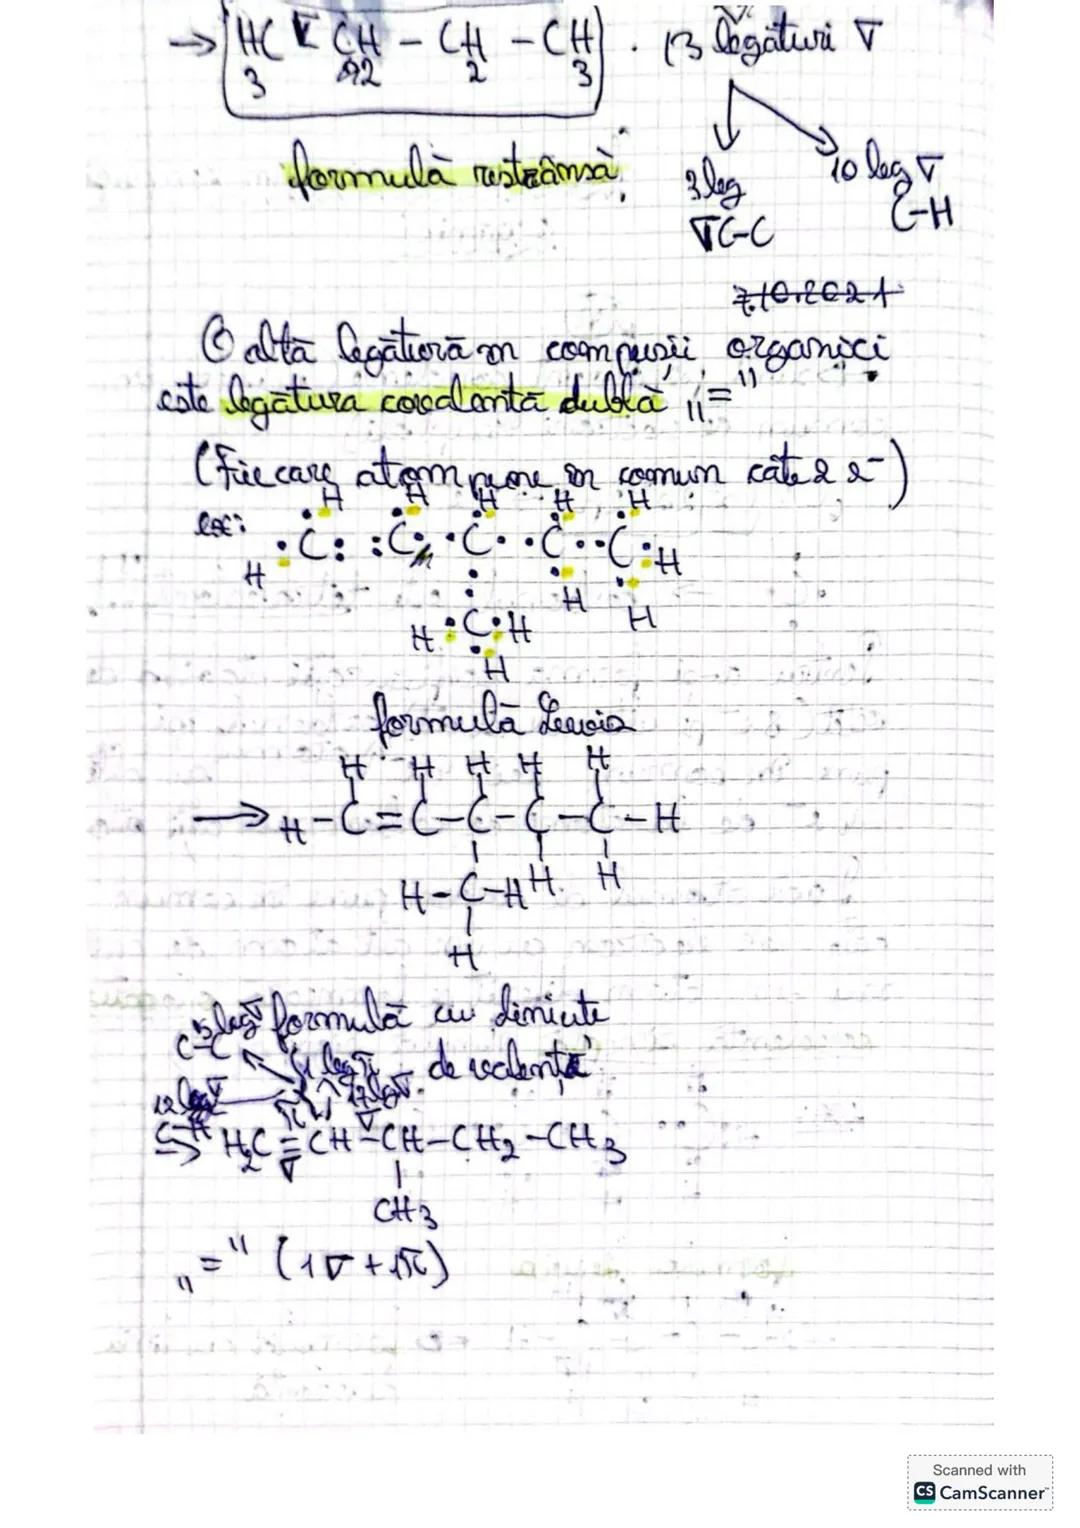 → H₃C σ CH₂ – CH₂ – CH₃ . 13 legături σ
formulă restrânsă
3 leg
σ C–C
10 leg σ
C–H
7.10.2021
O altă legătură în compușii organici
este legătura covalentă dublă „="
(Fiecare atom pune în comun câte 2 e⁻)
ex:
H H H H H
H ·C: :C· ·C· ·C· ·C· H
H H
H ·C· H
H
formulă Lewis
H H H H H
→ H–C=C–C–C–C–H
H–C–H H H
H
formulă cu liniuțe
de valență
5 leg σ
C–C
1 leg π
17 leg σ
12 leg σ
C–H
π σ
→ H₂C = CH – CH – CH₂ – CH₃
σ
CH₃
„=" (1σ + 1π)
Scanned with
CS CamScanner